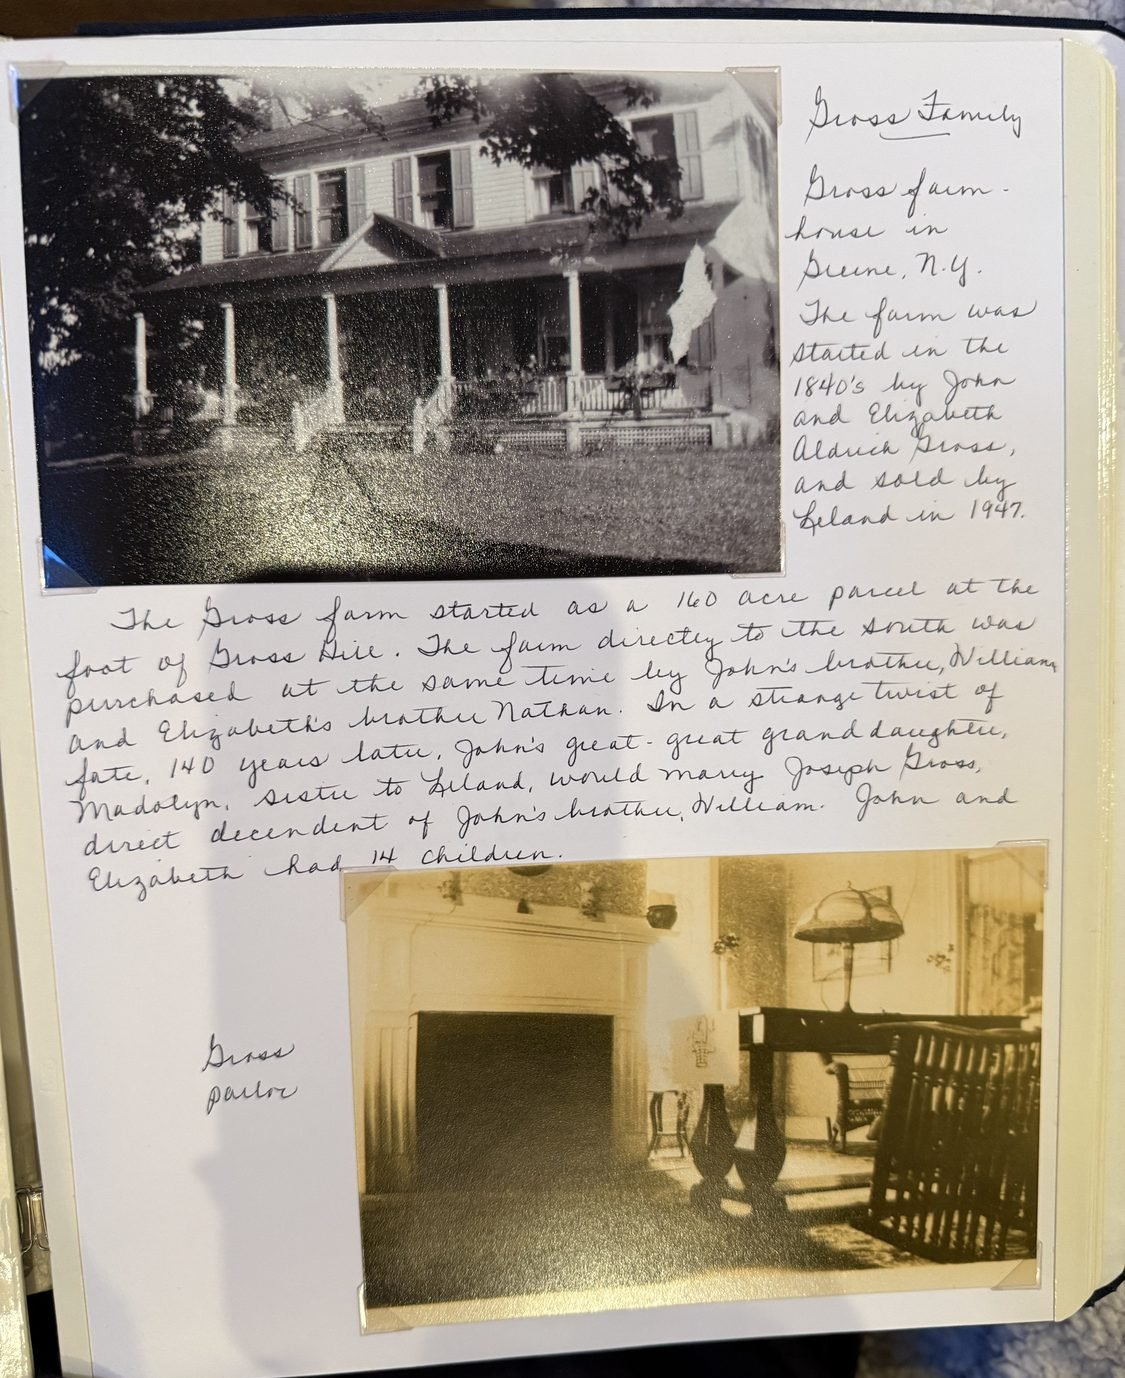 Gross Family
Gross farm-
house in
Greene, N.Y.
The farm was
started in the
1840's by John
and Elizabeth
Aldrich Gross,
and sold by
Leland in 1947.
The Gross farm started as a 160 acre parcel at the
foot of Gross Hill. The farm directly to the south was
purchased at the same time by John's brother, William
and Elizabeth's brother Nathan. In a strange twist of
fate, 140 years later, John's great-great granddaughter,
Madolyn, sister to Leland, would marry Joseph Gross,
direct decendent of John's brother, William. John and
Elizabeth had 14 children.
Gross
parlor